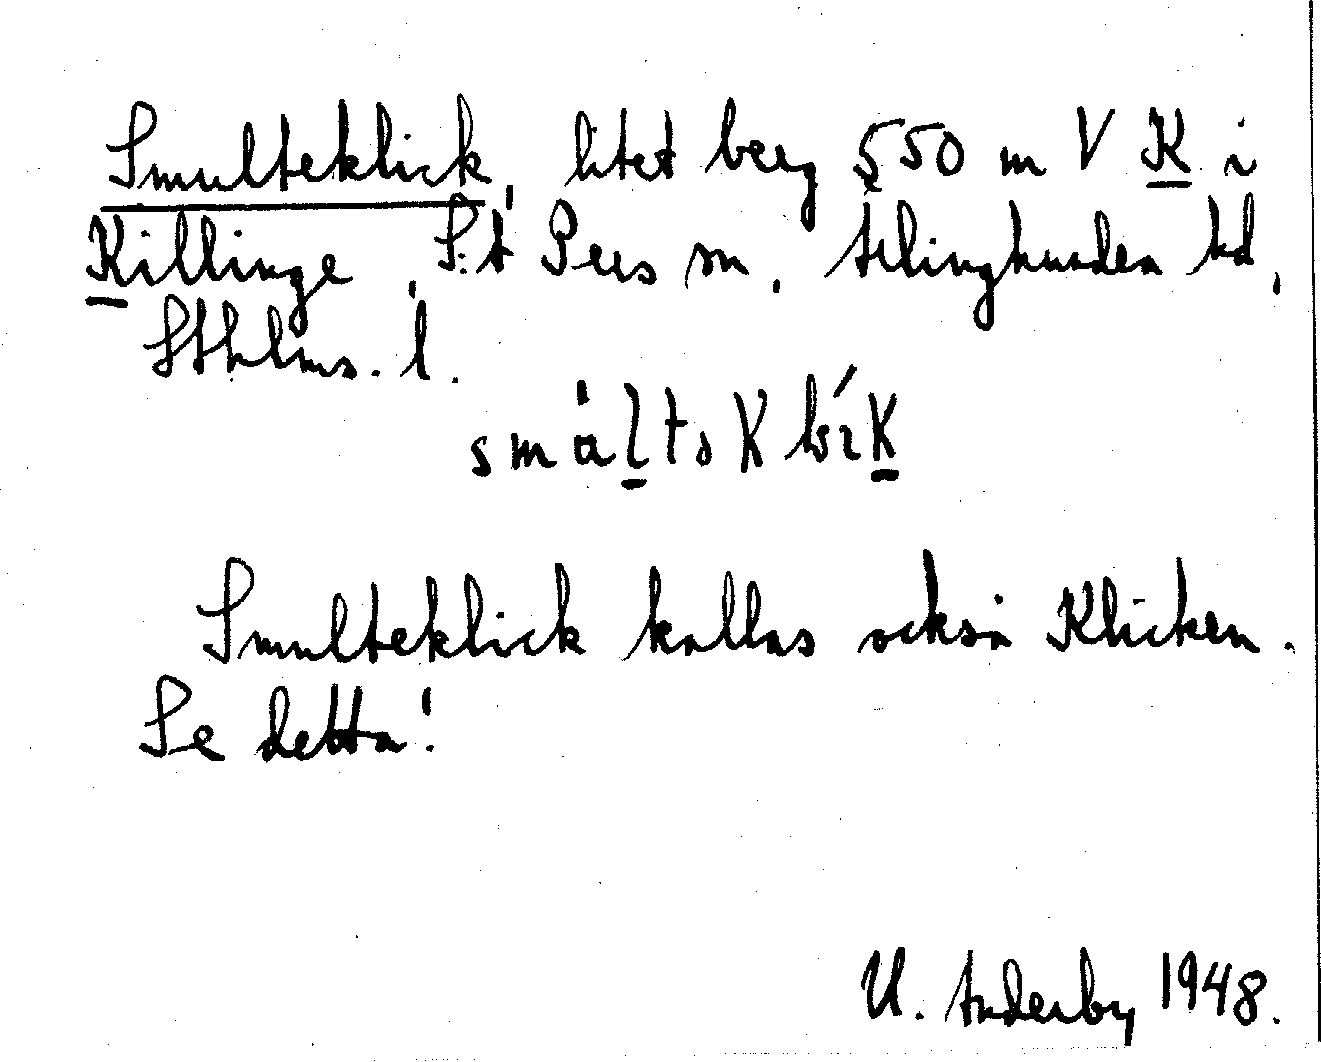 Smulteklick, litet berg 550 m V K i
Killinge, S:t Pers sn. Ärlinghundra hd,
Sthlms. l.
Smulteklick kallas också Klicken.
Se detta!
U. Anderby 1948.